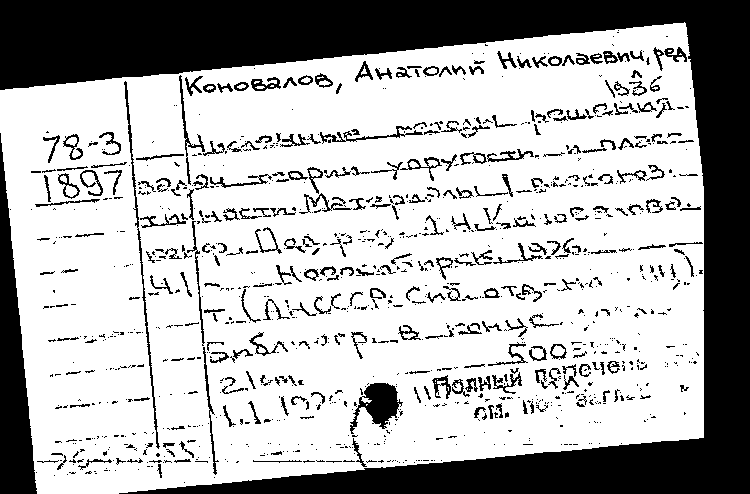 Коновалов, Анатолий Николаевич, ред.
1936
78-3
1897
Численные методы решения
задач теории упругости и плас-
тичности. Материалы I всесоюз.
конф. Под ред. А.Н. Коновалова.
Ч.1 - Новосибирск. 1976.
т. (АН СССР. Сиб. отд-ние
Библиогр. в конце
500экз.
2.1 от.
Ч.1. 1976.
Полный перечень
см. по загл.